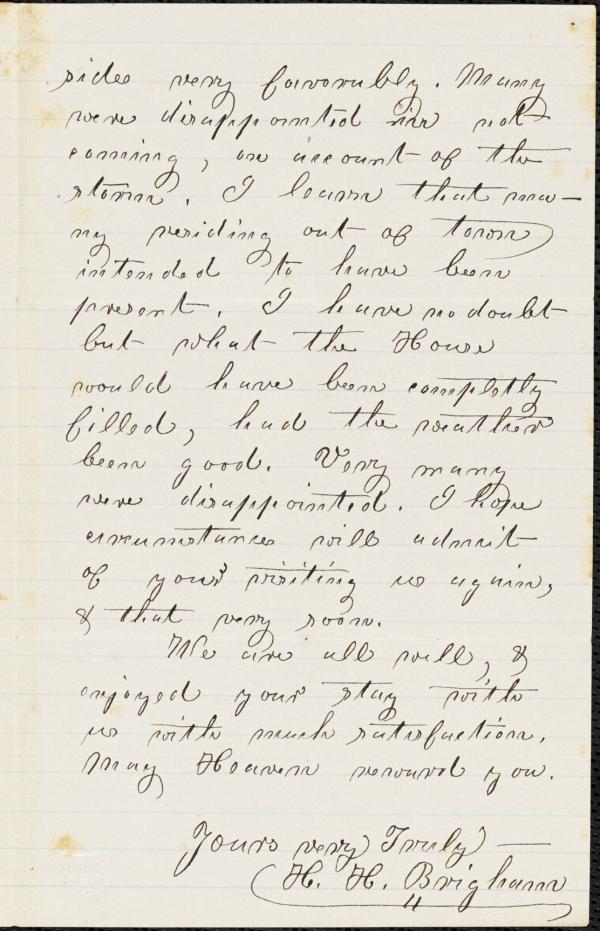 sides very favorably. Many
were disappointed in not
coming, on account of the
storm. I learn that ma-
ny residing out of town
intended to have been
present. I have no doubt
but what the House
would have been completly
filled, had the weather
been good. Very many
were disappointed. I hope
circumstances will admit
of your visiting us again,
& that very soon.
We are all well, &
enjoyed your stay with
us with much satisfaction.
May Heaven reward you.
Yours very Truly —
H. H. Brigham